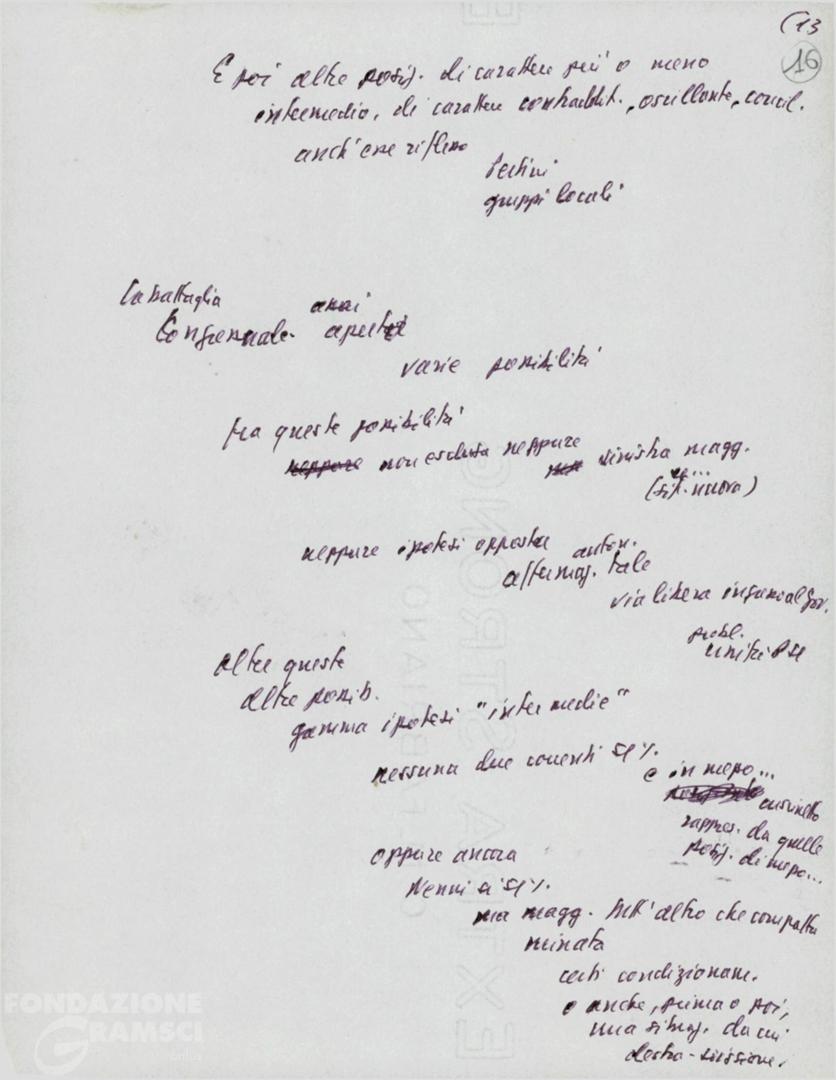 (13
16
E poi altre posiz. di carattere più o meno
intermedio, di carattere contraddit., oscillante, concil.
anch'esse riflesso
Pertini
gruppi locali
La battaglia
assai
Congressuale aperta
varie possibilità
tra queste possibilità
neppure non esclusa neppure
sinistra magg.
(sit. nuova)
neppure ipotesi opposta auton.
affermaz. tale
via libera ingresso al gov.
probl.
unità PSI
altre queste
altre possib.
gamma ipotesi "intermedie"
nessuna due correnti 51%
e in mezzo...
cuscinetto
rappres. da quelle
posiz. di mezzo...
oppure ancora
Nenni sì 51%
ma magg. tutt'altro che compatta
minata
certi condizionam.
o anche, prima o poi,
una situaz. da cui
destra-scissione.
FONDAZIONE
GRAMSCI
onlus
EXTRA STRONG